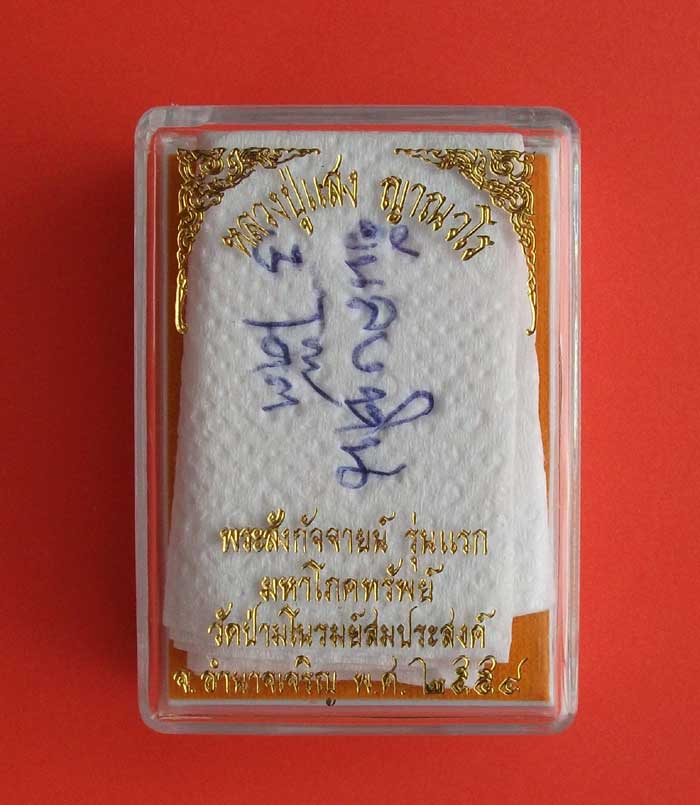 หลวงปู่แสง ญาณวโร
3 โค๊ต
พระสังกัจจายน์ รุ่นแรก
มหาโภคทรัพย์
วัดป่ามโนรมย์สมประสงค์
จ.อำนาจเจริญ พ.ศ.๒๕๕๔